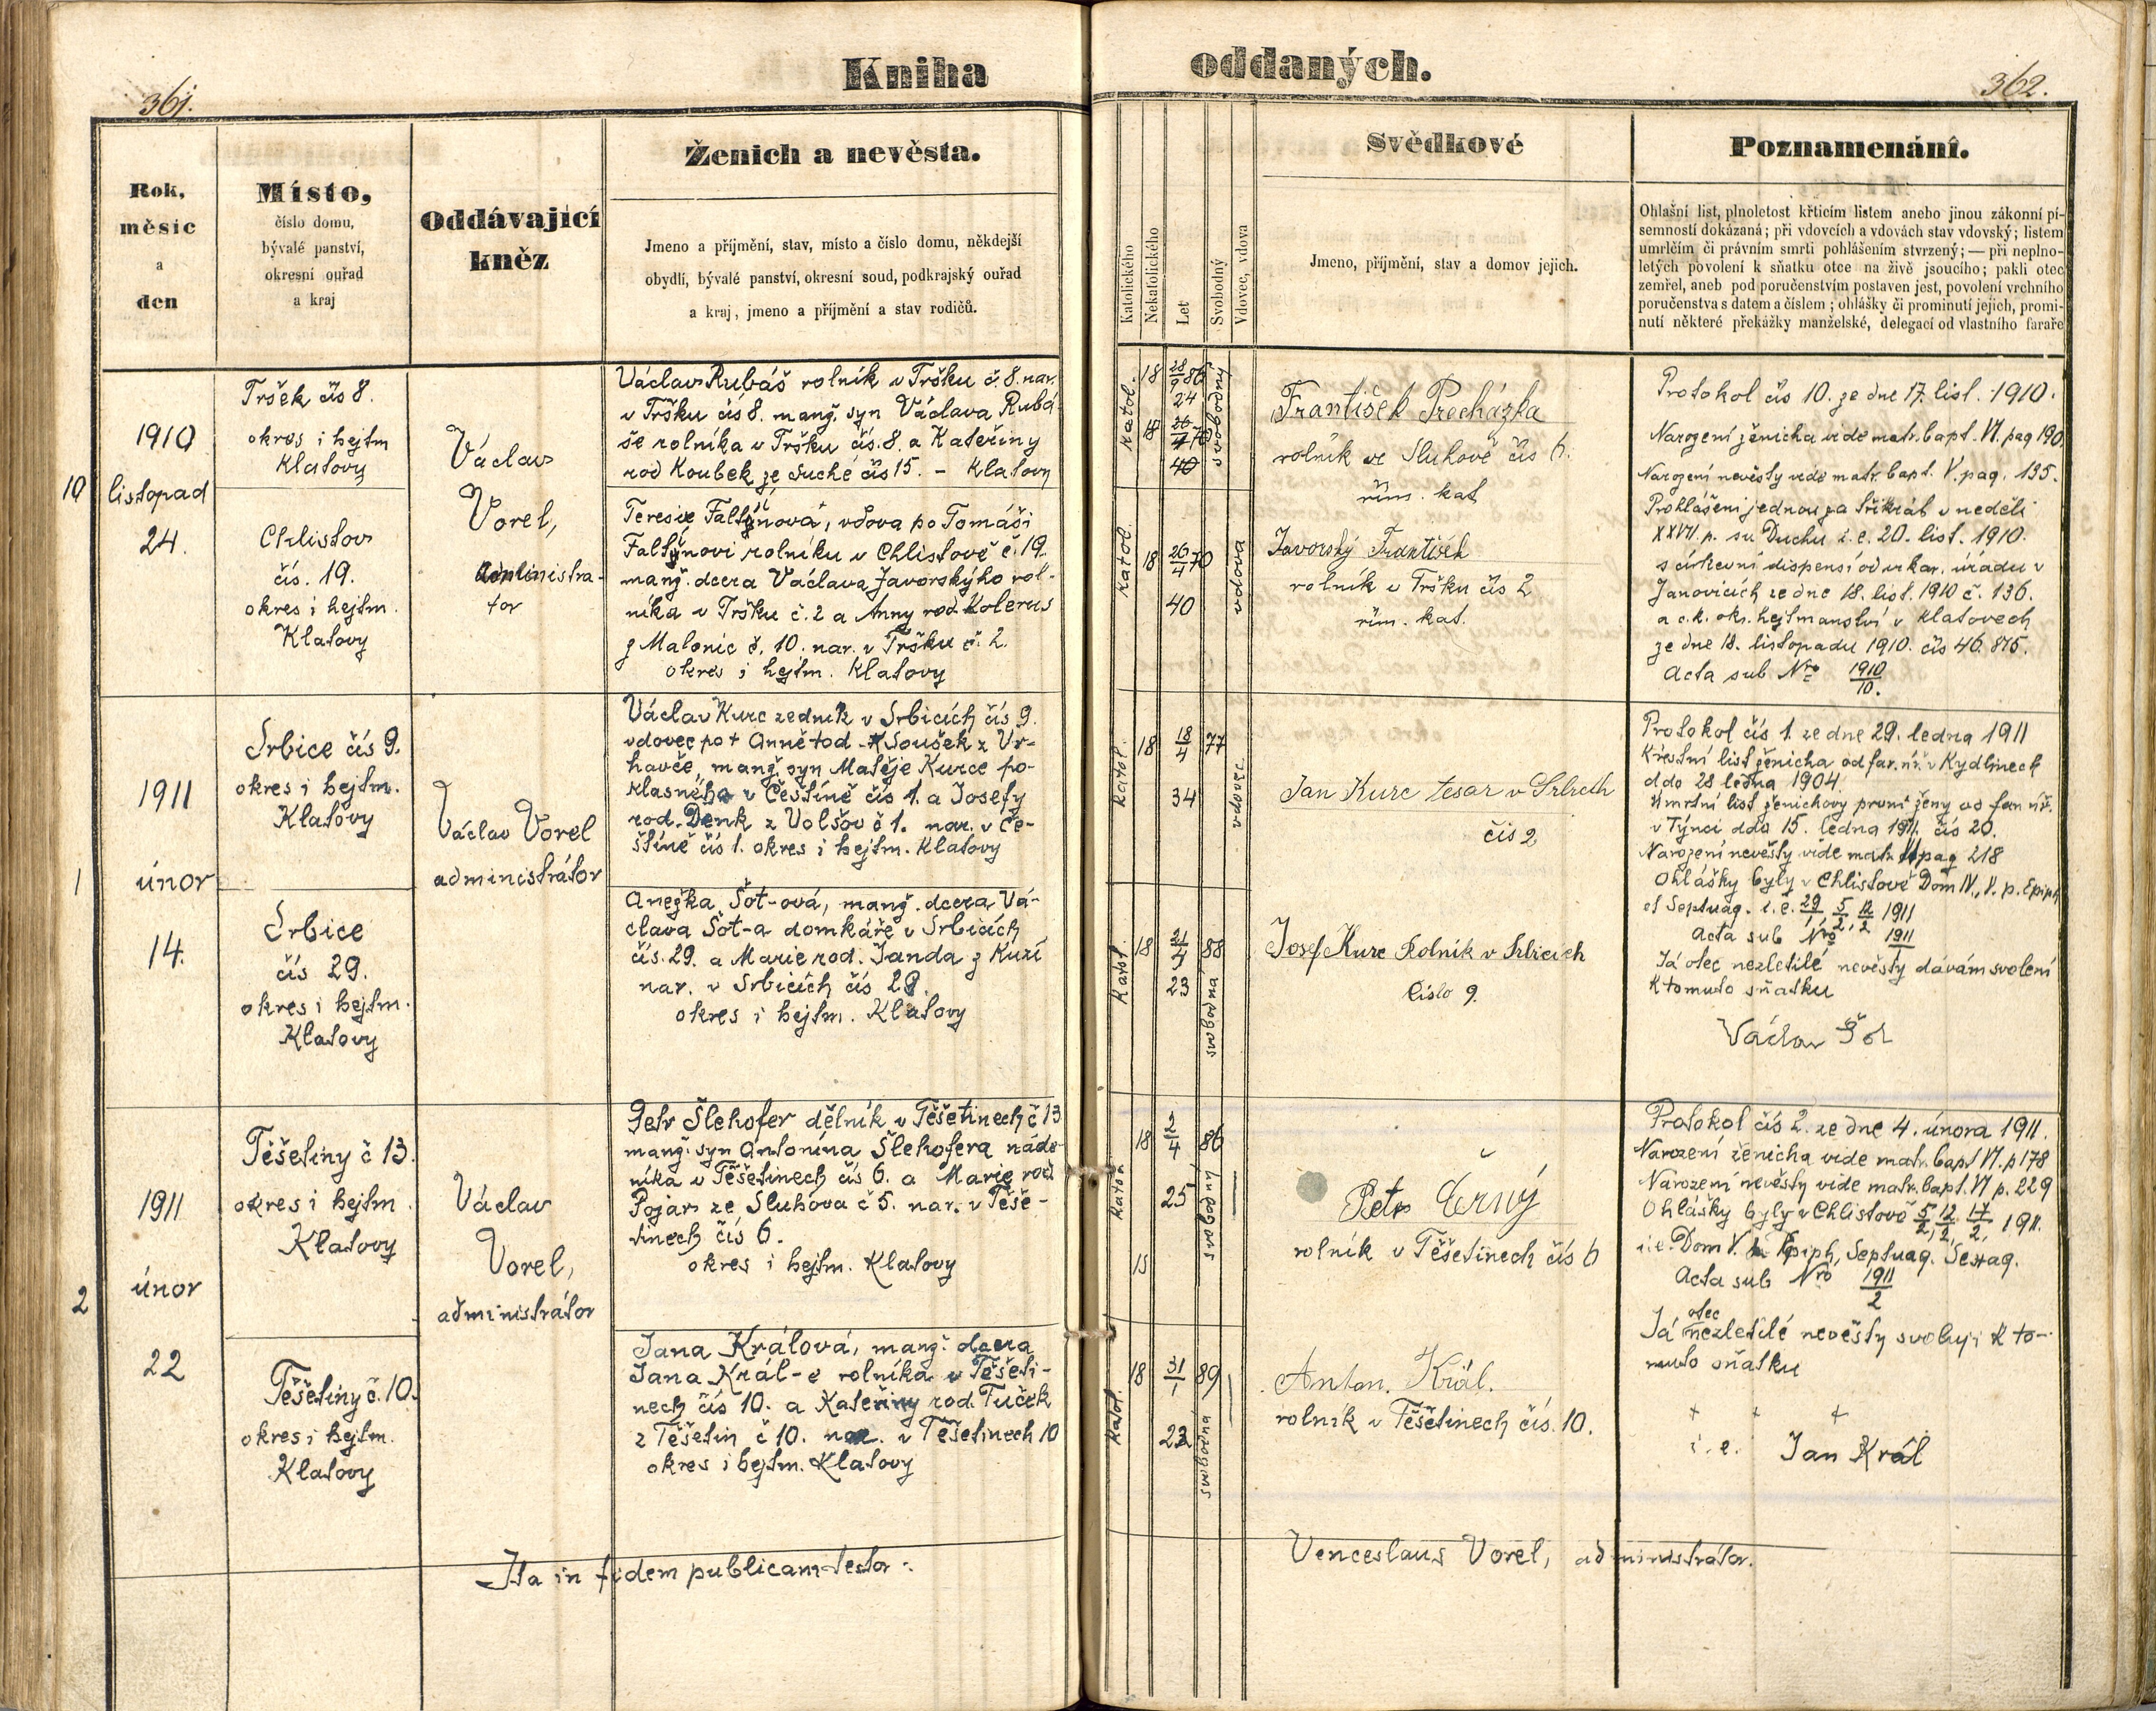 Kniha oddaných.
361.
362.
Rok,
měsíc
a
den
Místo,
číslo domu,
bývalé panství,
okresní ouřad
a kraj
Oddávající
kněz
Ženich a nevěsta.
Jmeno a příjmění, stav, místo a číslo domu, někdejší
obydlí, bývalé panství, okresní soud, podkrajský ouřad
a kraj, jmeno a příjmění a stav rodičů.
Katolického
Nekatolického
Let
Svobodný
Vdovec, vdova
Svědkové
Jmeno, příjmění, stav a domov jejich.
Poznamenání.
Ohlašní list, plnoletost křticím listem anebo jinou zákonní pí-
semností dokázaná; při vdovcích a vdovách stav vdovský; listem
umrlčím či právním smrti pohlášením stvrzený; — při neplno-
letých povolení k sňatku otce na živě jsoucího; pakli otec
zemřel, aneb pod poručenstvím postaven jest, povolení vrchního
poručenstva s datem a číslem; ohlášky či prominutí jejich, promi-
nutí některé překážky manželské, delegací od vlastního faráře
10
1910
listopad
24.
Tršek čís 8.
okres i hejtm
Klatovy
Chlistov
čís. 19.
okres i hejtm.
Klatovy
Václav
Vorel,
administra-
tor
Václav Rubáš rolník v Tršku č. 8. nar.
v Tršku čís 8. manž. syn Václava Rubá
še rolníka v Tršku čís. 8. a Kateřiny
rod Koubek ze Suché čís 15. - Klatovy
Teresie Faltýnová, vdova po Tomáši
Faltýnovi rolníku v Chlistově č. 19.
manž. dcera Václava Javorskýho rol-
níka v Tršku č. 2 a Anny rod. Kolerus
z Malonic č. 10. nar. v Tršku č. 2.
okres i hejtm. Klatovy
Katol.
18 28/9 86
24
svobodný
18
40
Katol.
18 26/4 70
40
vdova
František Procházka
rolník ve Sluhově čís 6.
řím. kat
Javorský František
rolník v Tršku čís 2
řím. kat.
Protokol čís 10. ze dne 17. list. 1910.
Narození ženicha vide matr. bapt. VI. pag 190
Narození nevěsty vide matr. bapt. V. pag. 135.
Prohlášeni jednou za třikrát v neděli
XXVII. p. sv. Duchu i. e. 20. list. 1910.
s církevní dispensí od vikar. úřadu v
Janovicích ze dne 18. list. 1910 č. 136.
a c. k. okr. hejtmanství v Klatovech
ze dne 18. listopadu 1910. čís 46.875.
Acta sub Nro 1910/10.
1
1911
únor
14.
Srbice čís 9.
okres i hejtm.
Klatovy
Srbice
čís 29.
okres i hejtm.
Klatovy
Václav Vorel
administrátor
Václav Kurc zedník v Srbicích čís 9.
vdovec po † Anně rod. Soušek z Vr-
havče, manž. syn Matěje Kurce po-
klasného v Češtíně čís 1. a Josefy
rod. Denk z Volšov č 1. nar. v Če-
štíně čís 1. okres i hejtm. Klatovy
Anežka Šot-ová, manž. dcera Vá-
clava Šot-a domkáře v Srbicích
čís. 29. a Marie rod. Janda z Kuzí
nar. v Srbicích čís 29.
okres i hejtm. Klatovy
Katol.
18 18/4 77
34
vdovec
Katol.
18 21/4 88
23
svobodná
Jan Kurc tesar v Srbicth
čis 2
Josef Kurc Rolník v Srbicich
číslo 9.
Protokol čís 1. ze dne 29. ledna 1911
Křestní list ženicha od far. úř. v Kydlinech
ddo 28 ledna 1904.
Úmrtní list ženichovy první ženy od far. úř.
v Týnci ddo 15. ledna 1911. čís 20.
Narození nevěsty vide matr. VI pag 218
Ohlášky byly v Chlistově Dom IV., V. p. Epiph
et Septuag. i. e. 29/1, 5/2, 12/2 1911
Acta sub Nro 1911/1
Já otec nezletilé nevěsty dávám svolení
k tomuto sňatku
Václav Šot
2
1911
únor
22
Těšetiny č 13.
okres i hejtm.
Klatovy
Těšetiny č. 10.
okres i hejtm.
Klatovy
Václav
Vorel,
administrátor
Petr Šlehofer dělník v Těšetinech č 13
manž. syn Antonína Šlehofera náde-
níka v Těšetinech čís 6. a Marie rod
Pojar ze Sluhova č 5. nar. v Těše-
tinech čís 6.
okres i hejtm. Klatovy
Jana Králová, manž. dcera
Jana Král-e rolníka v Těšeti-
nech čís 10. a Kateřiny rod. Tuček
z Těšetin č 10. nar. v Těšetinech 10
okres i hejtm. Klatovy
Katol.
18 2/4 86
25
svobodný
15
Katol.
18 31/1 89
22
svobodná
Petr Černý
rolník v Těšetinech čís 6
Anton. Král.
rolník v Těšetinech čís. 10.
Protokol čís 2. ze dne 4. února 1911.
Narození ženicha vide matr. bapt VI. p 178
Narození nevěsty vide matr. bapt. VI p. 229
Ohlášky byly v Chlistově 5/2, 12/2, 17/2, 1911.
i. e. Dom V. p. Epiph, Septuag. Sexag.
Acta sub Nro 1911/2
Já otec nezletilé nevěsty svoluji k to-
muto sňatku
† † †
i. e. Jan Král
Ita in fidem publicam testor:
Venceslaus Vorel, administrátor.